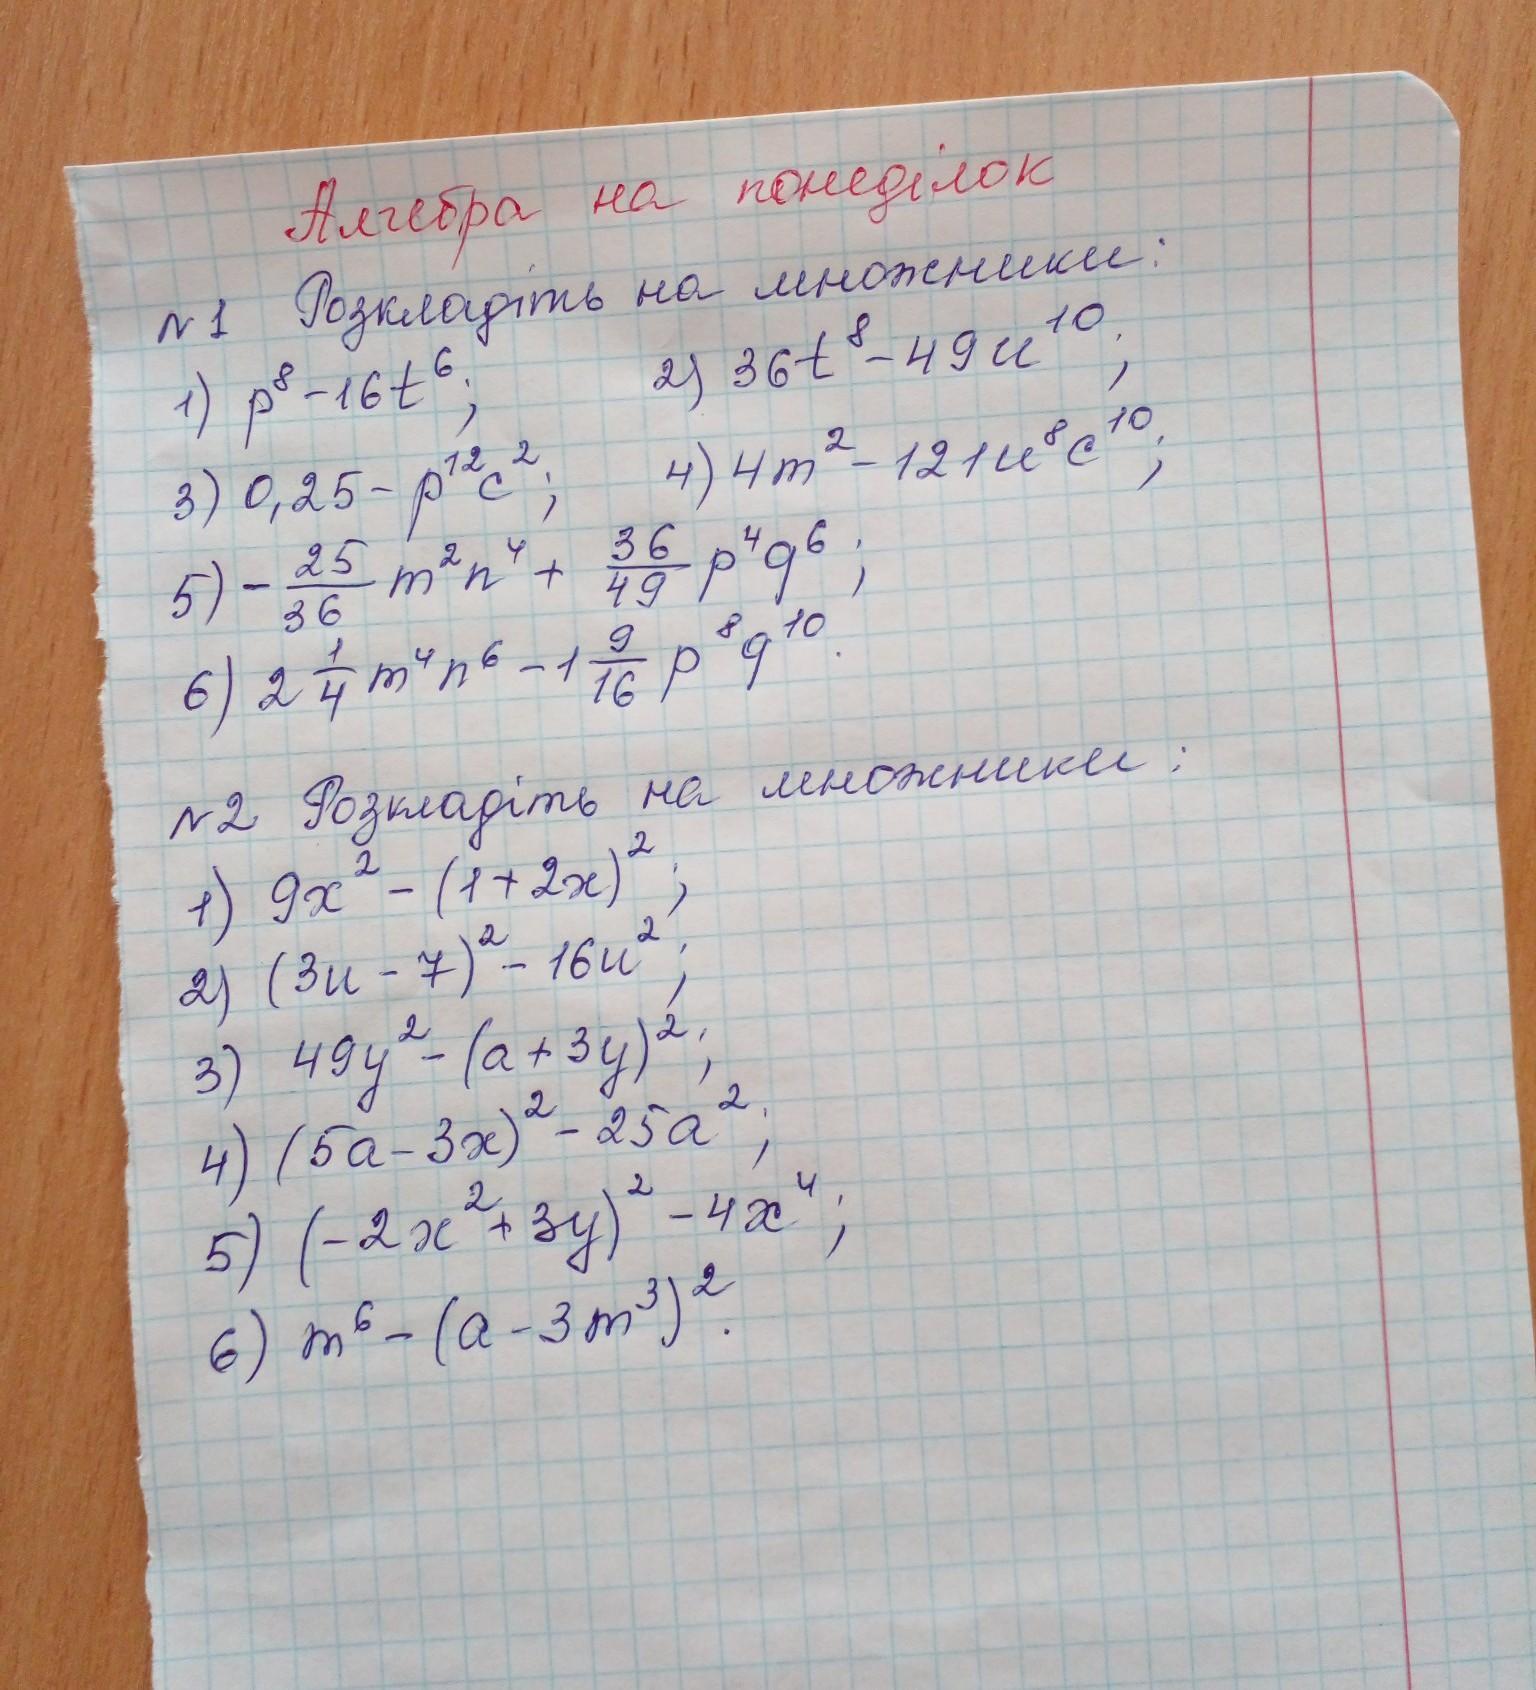 Алгебра на понеділок
№1 Розкладіть на множники:
1) p⁸ - 16t⁶; 2) 36t⁸ - 49u¹⁰;
3) 0,25 - p¹²c²; 4) 4m² - 121u⁸c¹⁰;
5) - 25/36 m²n⁴ + 36/49 p⁴q⁶;
6) 2 1/4 m⁴n⁶ - 1 9/16 p⁸q¹⁰.
№2 Розкладіть на множники:
1) 9x² - (1 + 2x)²;
2) (3u - 7)² - 16u²;
3) 49y² - (a + 3y)²;
4) (5a - 3x)² - 25a²;
5) (-2x² + 3y)² - 4x⁴;
6) m⁶ - (a - 3m³)².